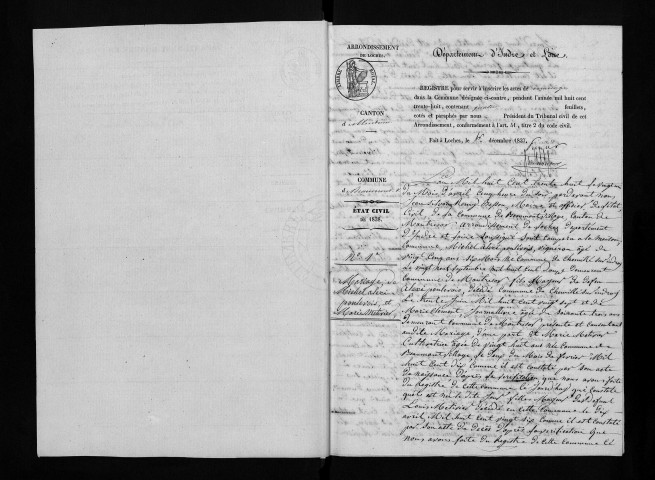 ARRONDISSEMENT
DE LOCHES.
CANTON
de Montrésor
COMMUNE
de Beaumont
ÉTAT CIVIL
DE 1838.
N.º 1er
Mariage de
Michel
et
Marie Métivier
Département d'Indre et Loire
REGISTRE pour servir à inscrire les actes de mariage
dans la Commune désignée ci-contre, pendant l'année mil huit cent
trente-huit, contenant feuillets,
cotés et paraphés par nous Président du Tribunal civil de cet
Arrondissement, conformément à l'art. 41, titre 2 du code civil.
Fait à Loches, le décembre 1837.
L'an Mil huit Cent trente huit le vingt
du Mois d'avril cinq heures du soir par devant nous
Jean Maire et officier de l'état
Civil de la Commune de Beaumont Village Canton de
Montrésor arrondissement de Loches Département
d'Indre et Loire soussigné sont comparus en la maison
Commune, Michel vigneron âgé de
vingt cinq ans six Mois né Commune de Chemillé sur Indrois
le vingt neuf Septembre mil huit cent douze demeurant
Commune de Montrésor fils Majeur de défunt
décédé Commune de Chemillé sur Indrois
Le trente Juin Mil huit Cent vingt sept et de
Marie Clément, Journallière âgée de soixante trois ans
demeurant Commune de Montrésor présente et consentant
au dit Mariage d'une part Et Marie Métivier
Cultivatrice âgée de vingt huit ans née Commune de
Beaumont Village, le deux du Mois de février Mil
huit Cent dix comme il est constaté par son acte
de naissance d'après la vérification que nous avons faite
du Registre de cette commune
fille Majeure de défunt
Louis Métivier décédé en cette Commune le dix
avril Mil huit Cent vingt six comme il est constaté
par son acte de Décès d'après la vérification que
nous avons faite du Registre de cette Commune et